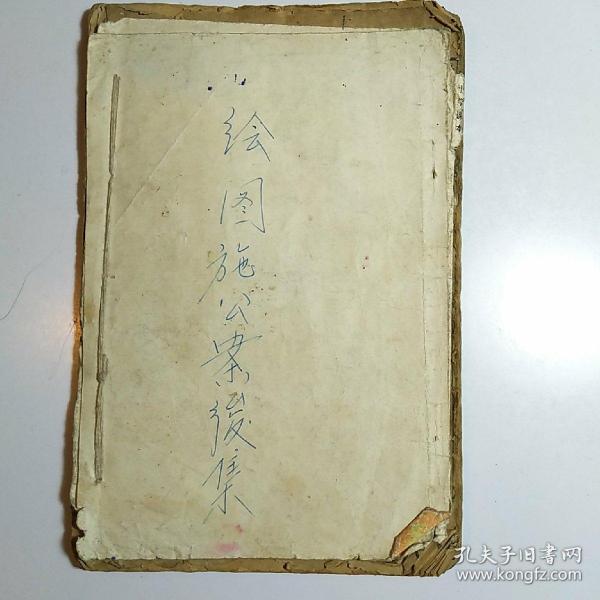 绘图施公案後集
孔夫子旧书网
www.kongfz.com